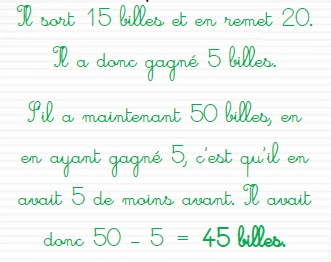 Il sort 15 billes et en remet 20.
Il a donc gagné 5 billes.
S'il a maintenant 50 billes, en
en ayant gagné 5, c'est qu'il en
avait 5 de moins avant. Il avait
donc 50 – 5 = 45 billes.